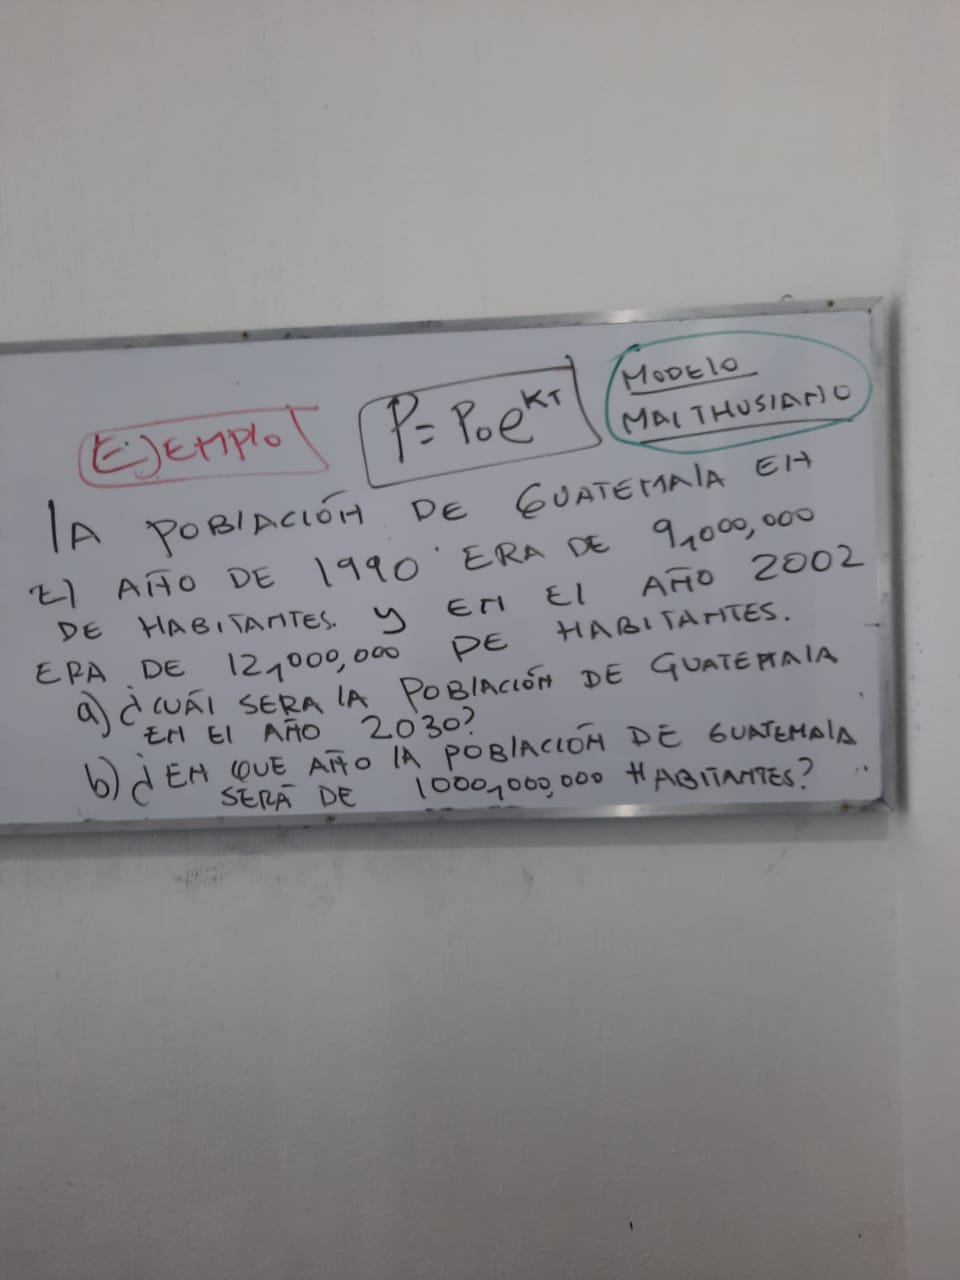 EJEMPLO
P = P₀e^KT
MODELO
MALTHUSIANO
LA POBLACIÓN DE GUATEMALA EN
El AÑO DE 1990 ERA DE 9,000,000
DE HABITANTES. Y EN El AÑO 2002
ERA DE 12,000,000 DE HABITANTES.
a) ¿CUÁl SERA lA POBlACIÓN DE GUATEMAlA
EN El AÑO 2030?
b) ¿EN QUE AÑO lA POBlACIÓN DE GUATEMAlA
SERÁ DE 1000,000,000 HABITANTES?